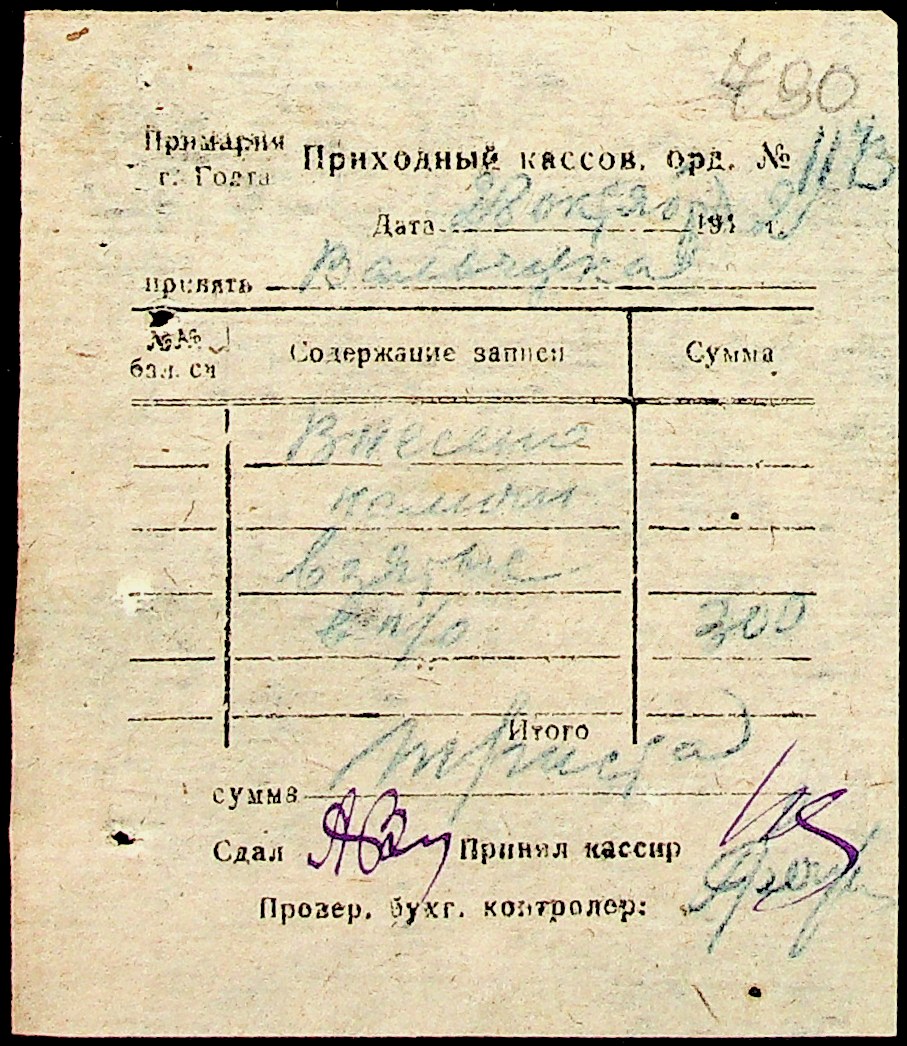 790
Примария
г. Голта
Приходный кассов. орд. №
Дата 28 октября 194 г.
принять Вальчука
№№
бал. сч
Содержание записи
Сумма
Внесены
взятые
в п/о
300
Итого
сумма триста
Сдал
Принял кассир
Провер. бухг. контролер: